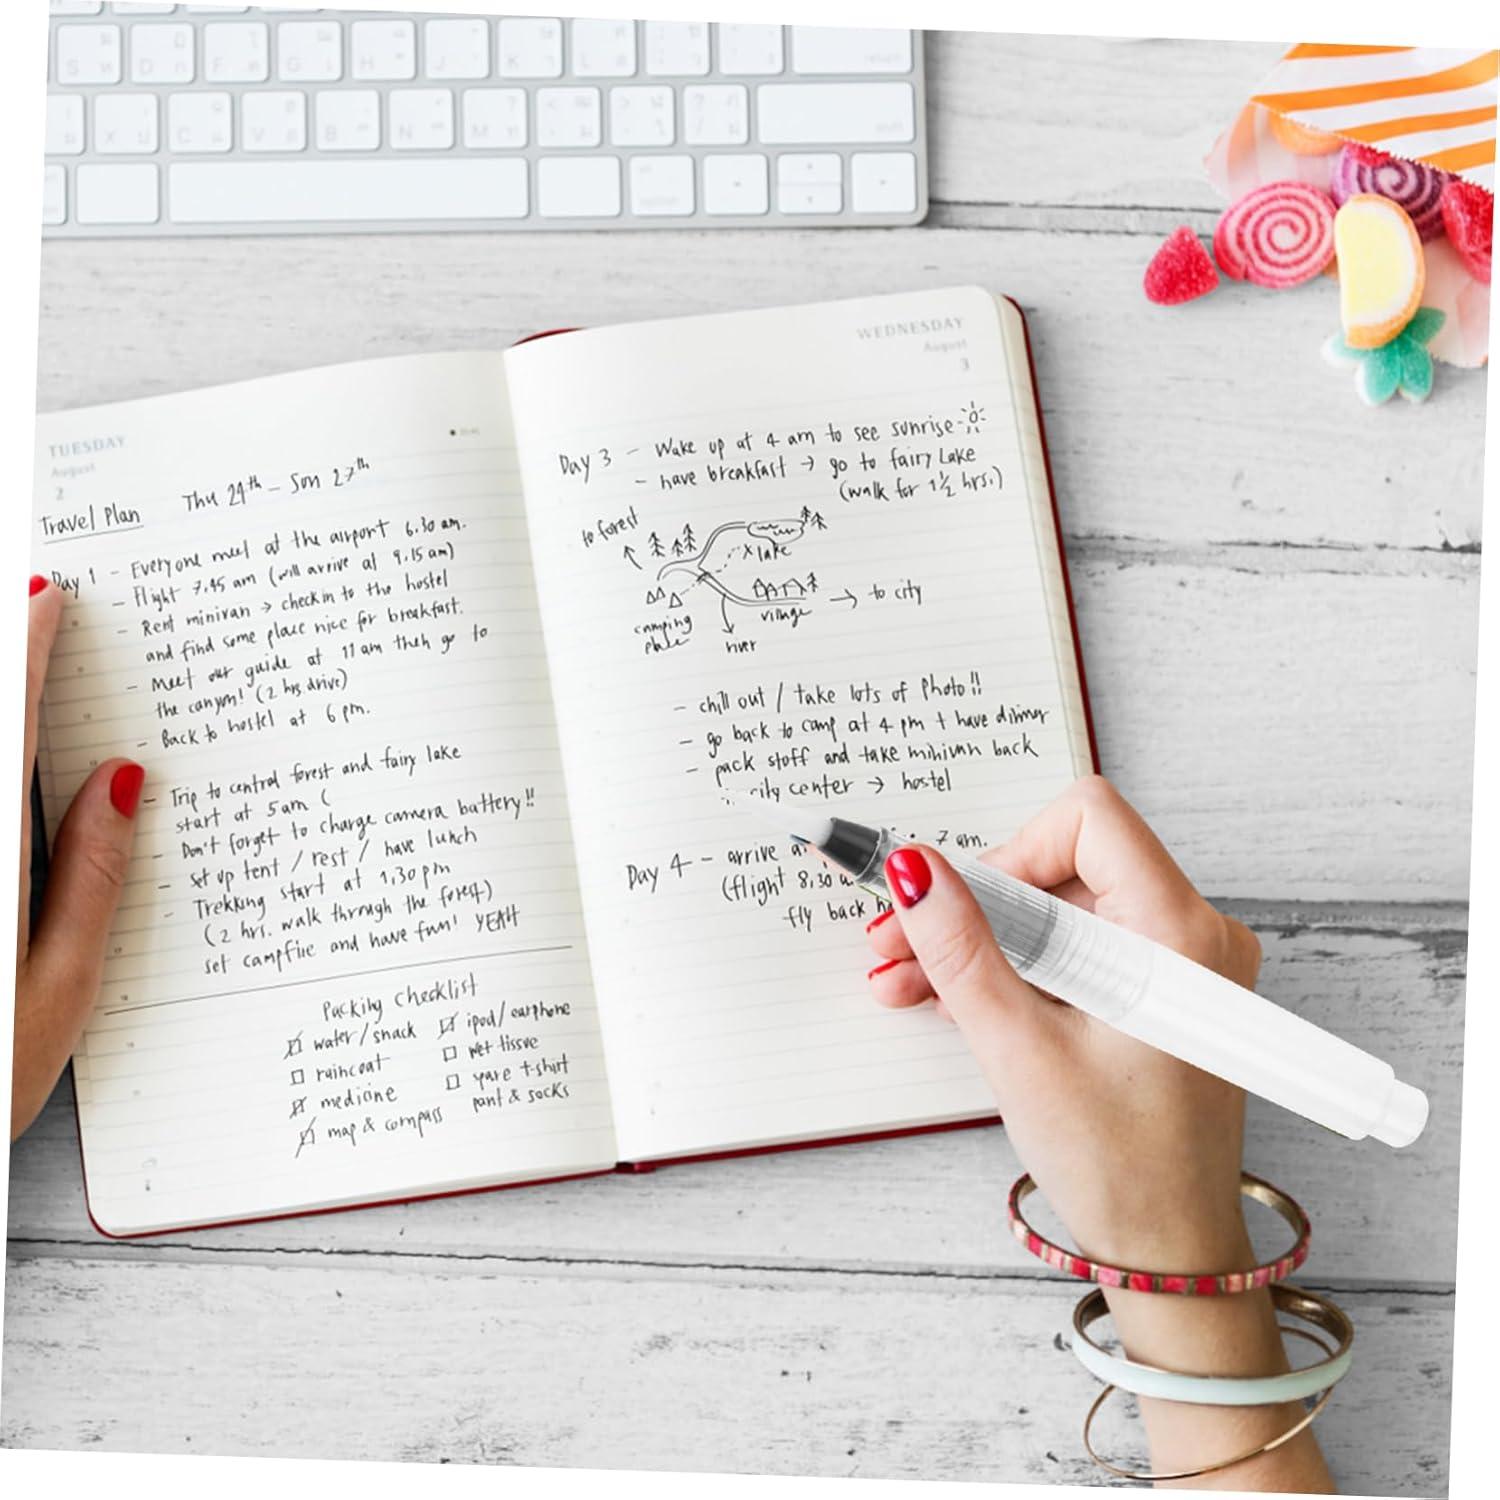 TUESDAY
August
2
Travel Plan Thu 24th - Sun 27th
Day 1 - Everyone meet at the airport 6.30 am.
- Flight 7.45 am (will arrive at 9.15 am)
- Rent minivan → check in to the hostel
and find some place nice for breakfast.
- Meet our guide at 11 am then go to
the canyon! (2 hrs. drive)
- Back to hostel at 6 pm.
- Trip to central forest and fairy lake
start at 5 am (
- Don't forget to charge camera battery!!
- set up tent / rest / have lunch
- Trekking start at 1,30 pm
(2 hrs. walk through the forest)
set campfire and have fun! YEAH
Packing Checklist
water/snack
raincoat
medicine
map & compass
ipod/earphone
wet tissue
spare t-shirt
pant & socks
WEDNESDAY
August
3
Day 3 - Wake up at 4 am to see sunrise
- have breakfast → go to fairy Lake
(walk for 1½ hrs.)
to forest
x lake
camping
place
village
→ to city
river
- chill out / take lots of photo!!
- go back to camp at 4 pm + have dinner
- pack stuff and take minivan back
city center → hostel
Day 4 - arrive 7 am.
(flight 8,30
fly back
S D F G H J K L return
X C V B N M shift
option